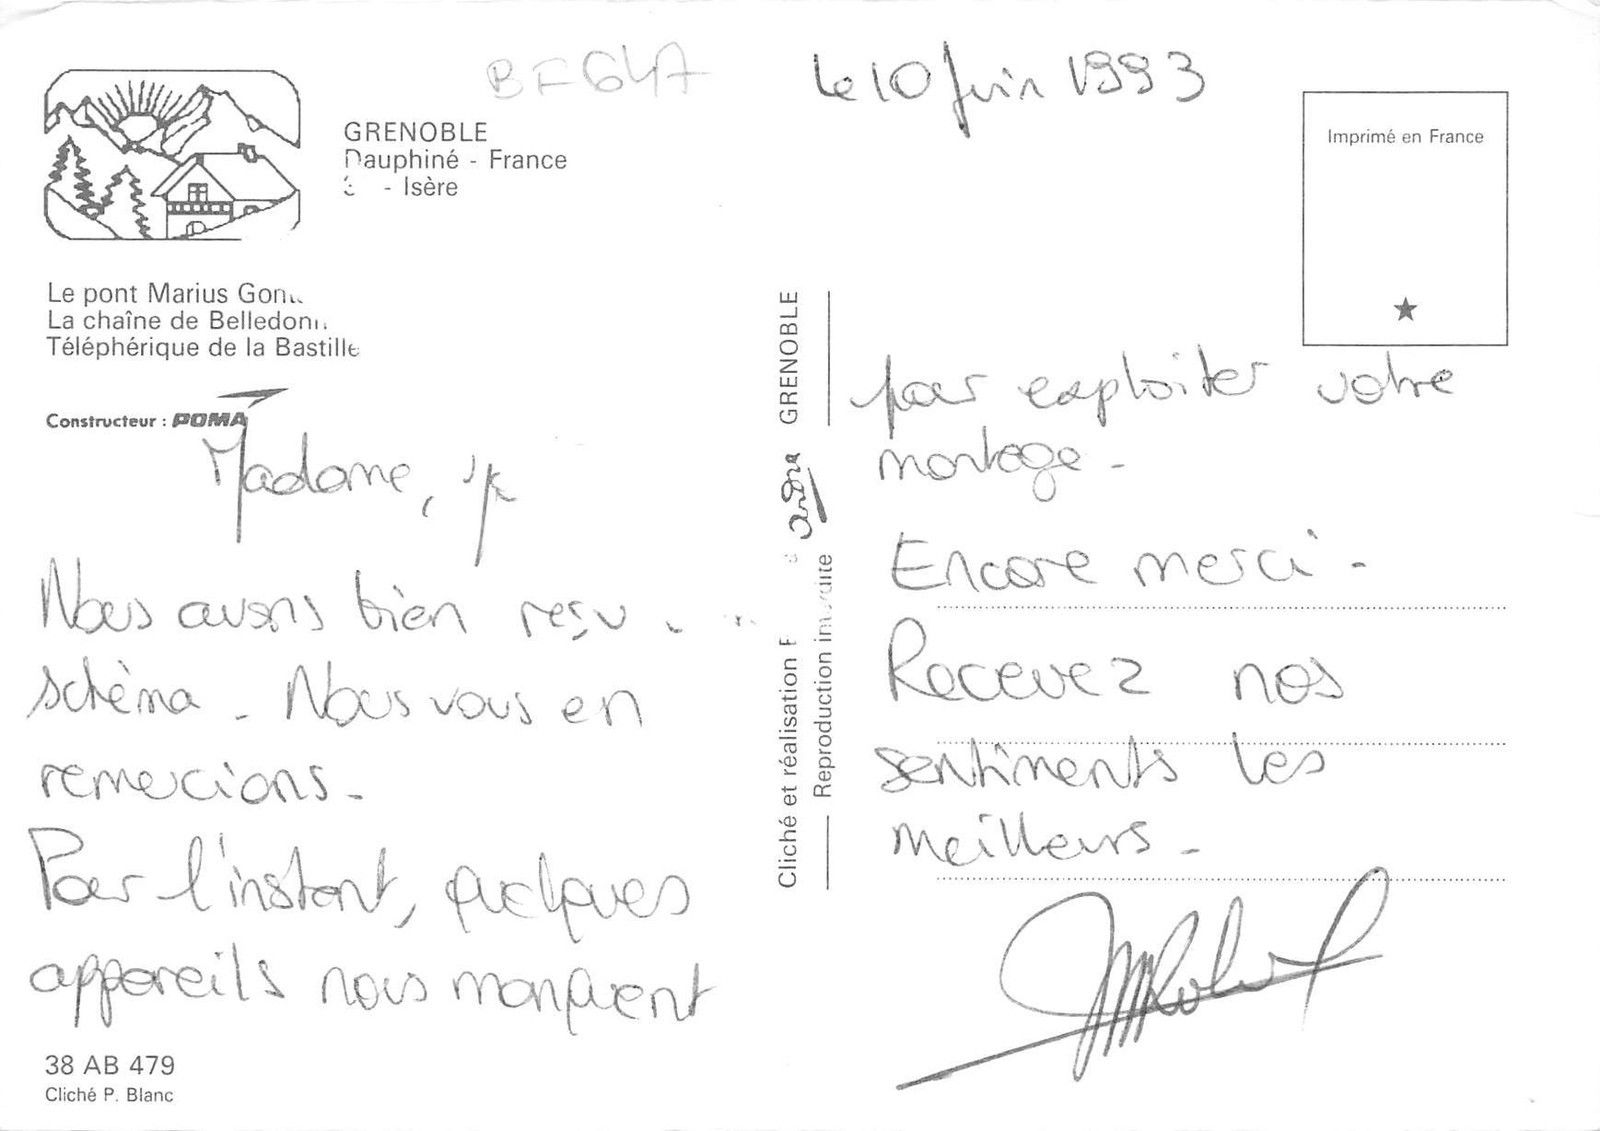 BF647
Le 10 Juin 1993
GRENOBLE
Dauphiné - France
- Isère
Imprimé en France
Le pont Marius
La chaîne de
Téléphérique de la Bastille
Constructeur : POMA
Madame,
Nous avons bien reçu
schéma - Nous vous en
remercions -
Pour l'instant, quelques
appareils nous manquent
38 AB 479
Cliché P. Blanc
GRENOBLE
Cliché et réalisation
Reproduction
pour exploiter votre
montage -
Encore merci -
Recevez nos
sentiments les
meilleurs -